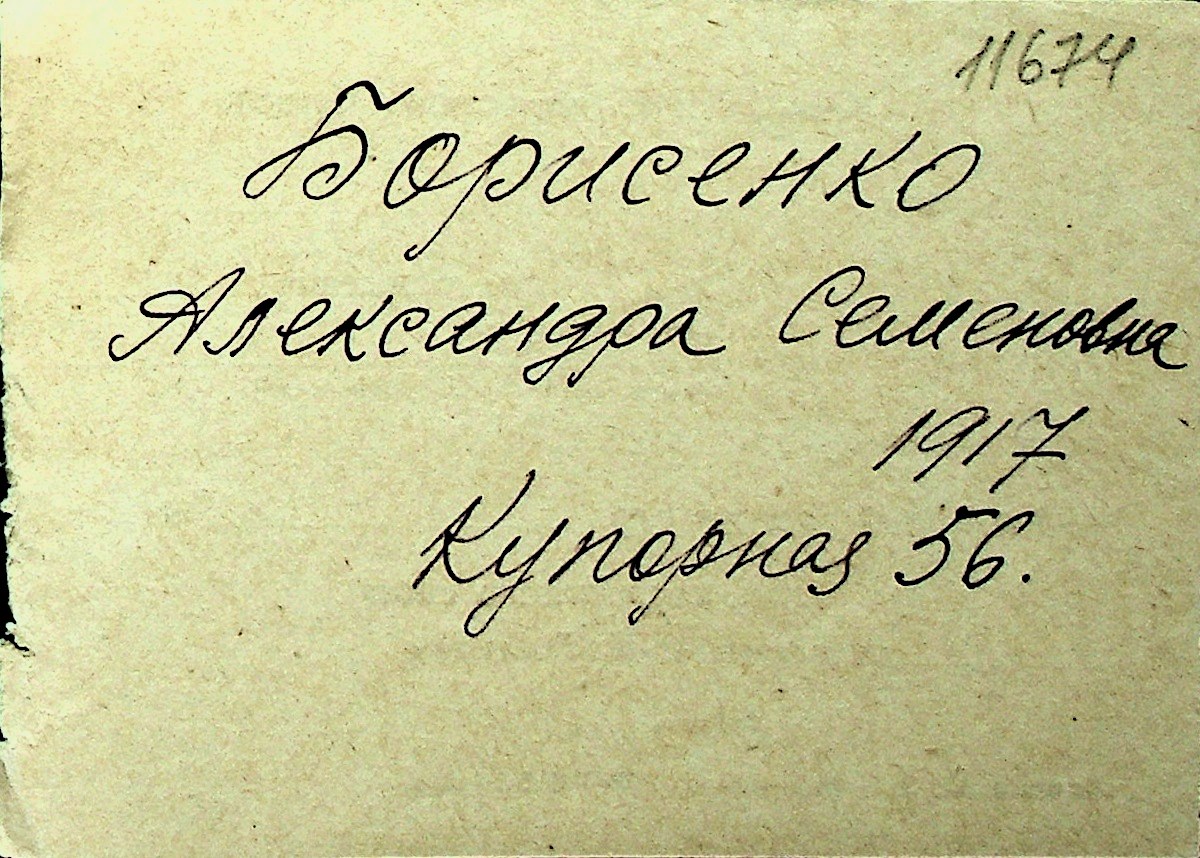 11674
Борисенко
Александра Семеновна
1917
Купорная 56.